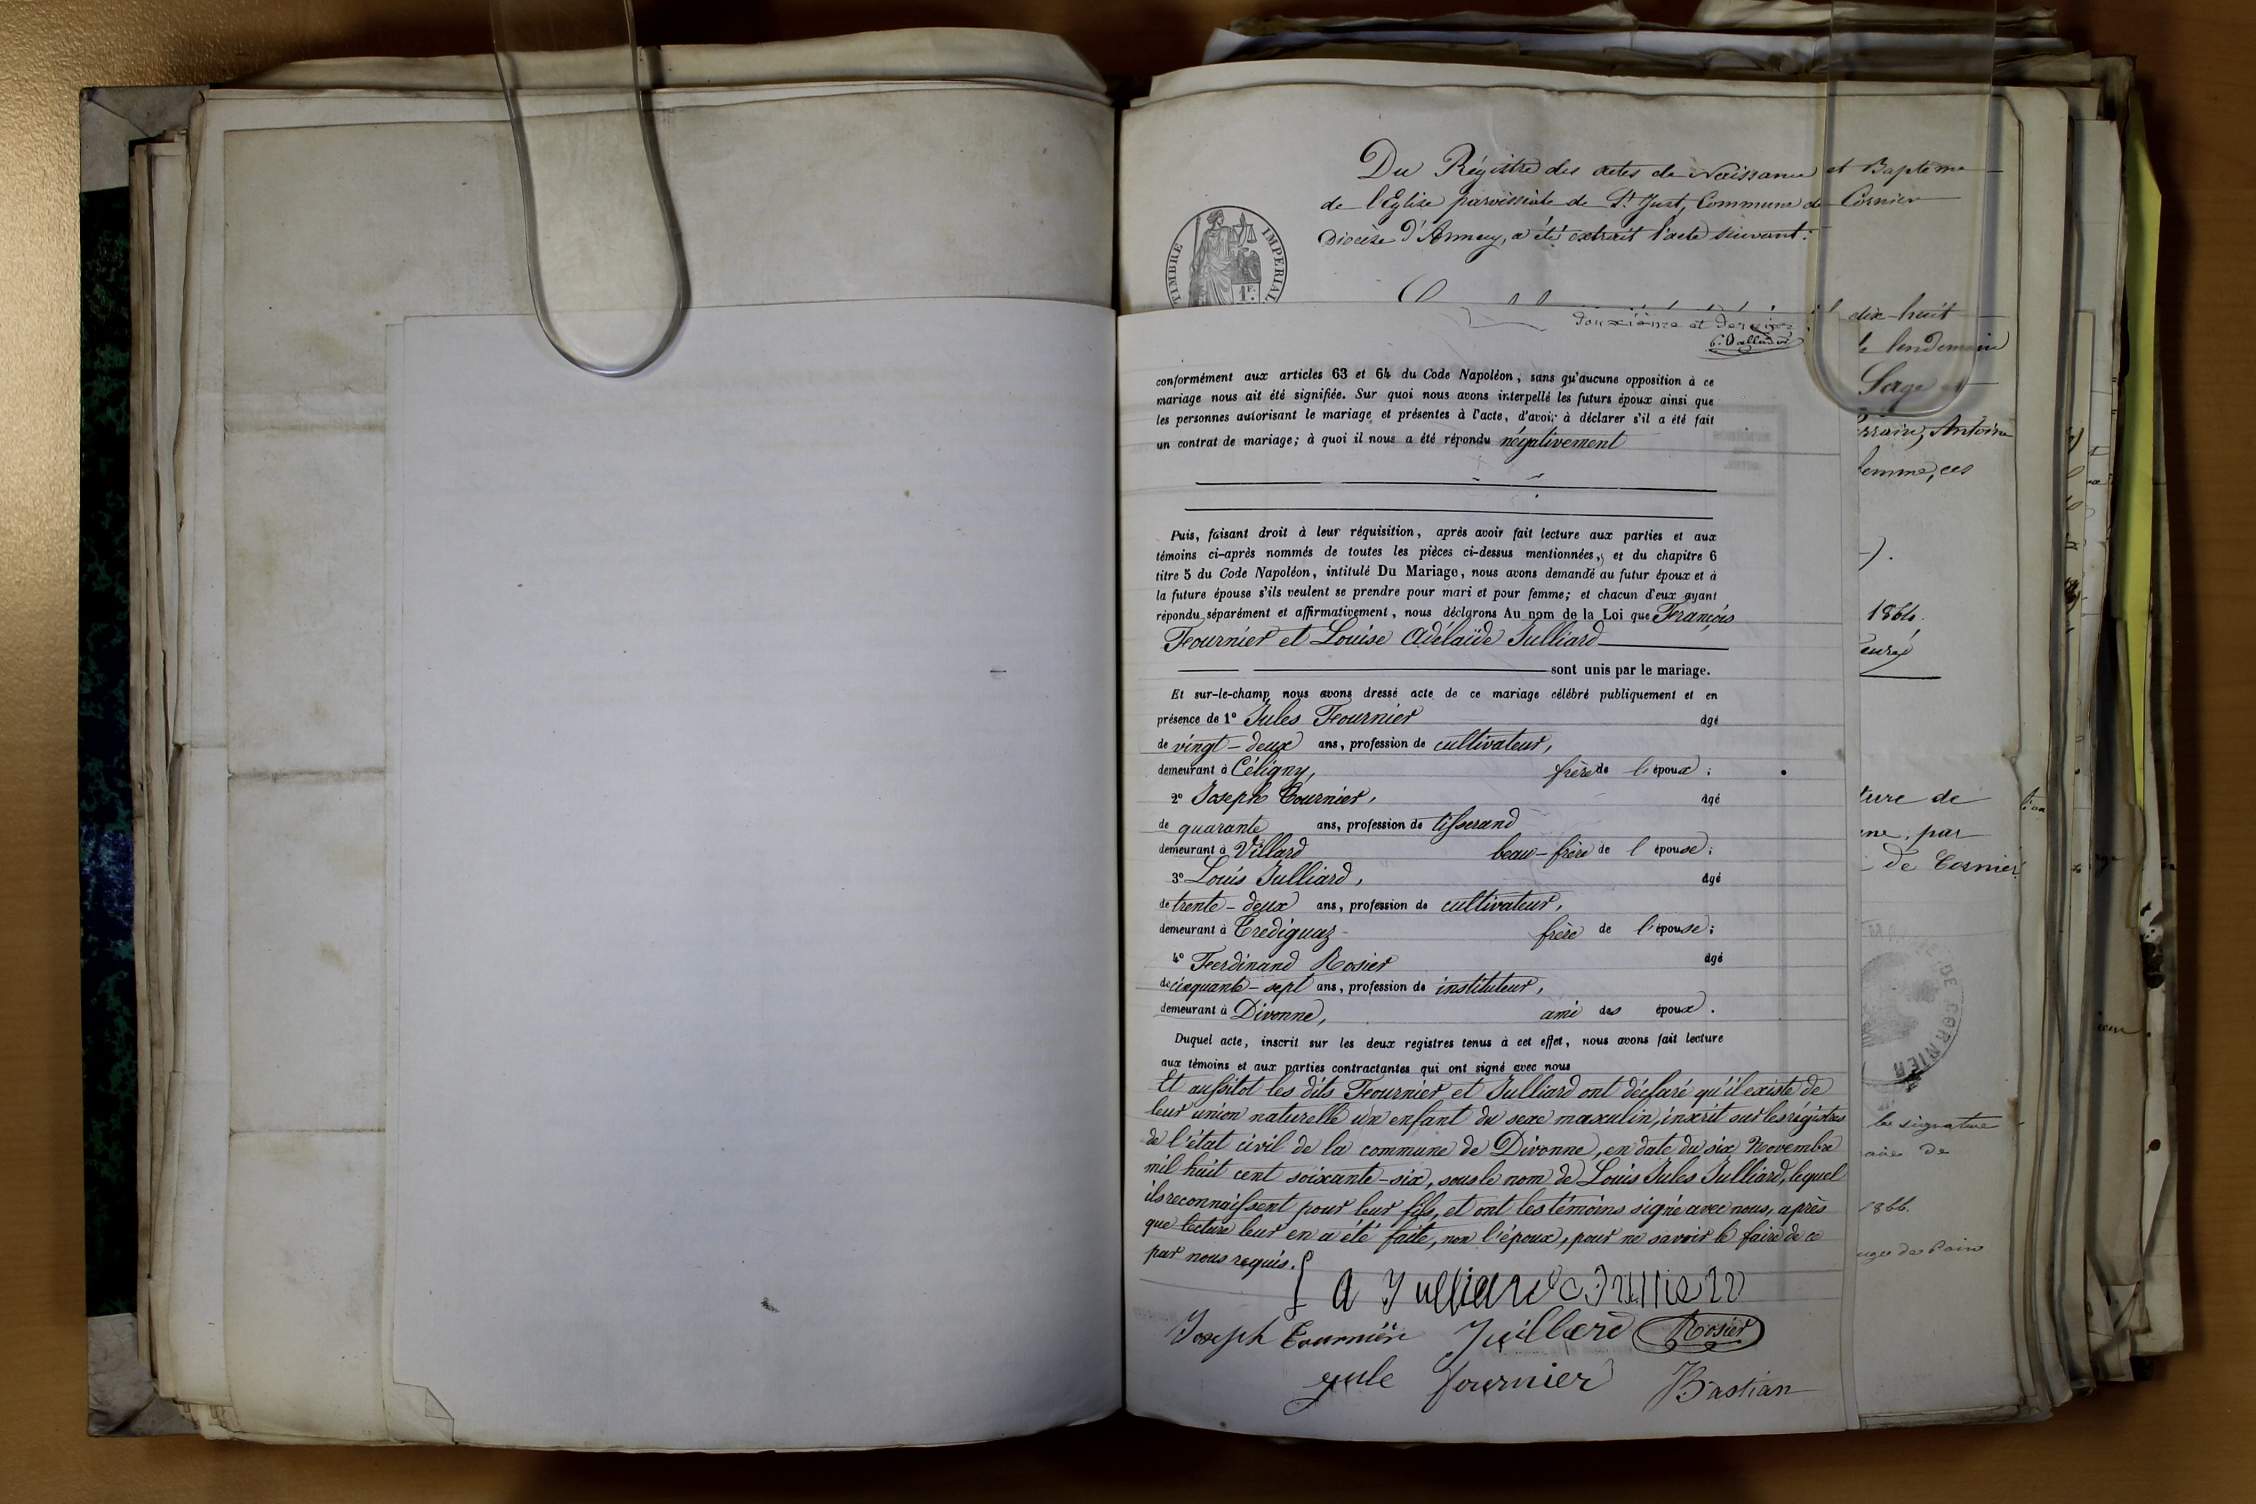 Du Régistre des actes de Naissance et Baptême
de l'Eglise paroissiale de St Just, Commune de Cornier
Diocèse d'Annecy, a été extrait l'acte suivant:
TIMBRE IMPERIAL
1F.
dix-huit
douxième et dernier
le lendemain
Sage et
conformément aux articles 63 et 64 du Code Napoléon, sans qu'aucune opposition à ce
mariage nous ait été signifiée. Sur quoi nous avons interpellé les futurs époux ainsi que
les personnes autorisant le mariage et présentes à l'acte, d'avoir à déclarer s'il a été fait
un contrat de mariage; à quoi il nous a été répondu négativement
Antoine
femme, ces
Puis, faisant droit à leur réquisition, après avoir fait lecture aux parties et aux
témoins ci-après nommés de toutes les pièces ci-dessus mentionnées, et du chapitre 6
titre 5 du Code Napoléon, intitulé Du Mariage, nous avons demandé au futur époux et à
la future épouse s'ils veulent se prendre pour mari et pour femme; et chacun d'eux ayant
répondu séparément et affirmativement, nous déclarons Au nom de la Loi que François
Fournier et Louise Adélaïde Julliard
sont unis par le mariage.
Et sur-le-champ nous avons dressé acte de ce mariage célébré publiquement et en
présence de 1° Jules Fournier âgé
de vingt-deux ans, profession de cultivateur,
demeurant à Céligny, frère de l'époux;
2° Joseph Tournier, âgé
de quarante ans, profession de tisserand
demeurant à Villard beau-frère de l'épouse;
3° Louis Julliard, âgé
de trente-deux ans, profession de cultivateur,
demeurant à Trediguaz frère de l'épouse;
4° Ferdinand Rosier âgé
de cinquante-sept ans, profession de instituteur,
demeurant à Divonne, ami des époux.
Duquel acte, inscrit sur les deux registres tenus à cet effet, nous avons fait lecture
aux témoins et aux parties contractantes qui ont signé avec nous
Et aussitot les dits Fournier et Julliard ont déclaré qu'il existe de
leur union naturelle un enfant du sexe masculin, inscrit sur les régistres
de l'état civil de la commune de Divonne, en date du six Novembre
mil huit cent soixante-six, sous le nom de Louis Jules Julliard, lequel
ils reconnaissent pour leur fils, et ont les témoins signé avec nous, après
que lecture leur en a été faite, non l'époux, pour ne savoir le faire de ce
par nous requis.
A Julliard
Joseph Tournier Juillard Rosier
jule fournier Bastian
curé
ture de
par
de Cornier
DE CORNIER
la signature